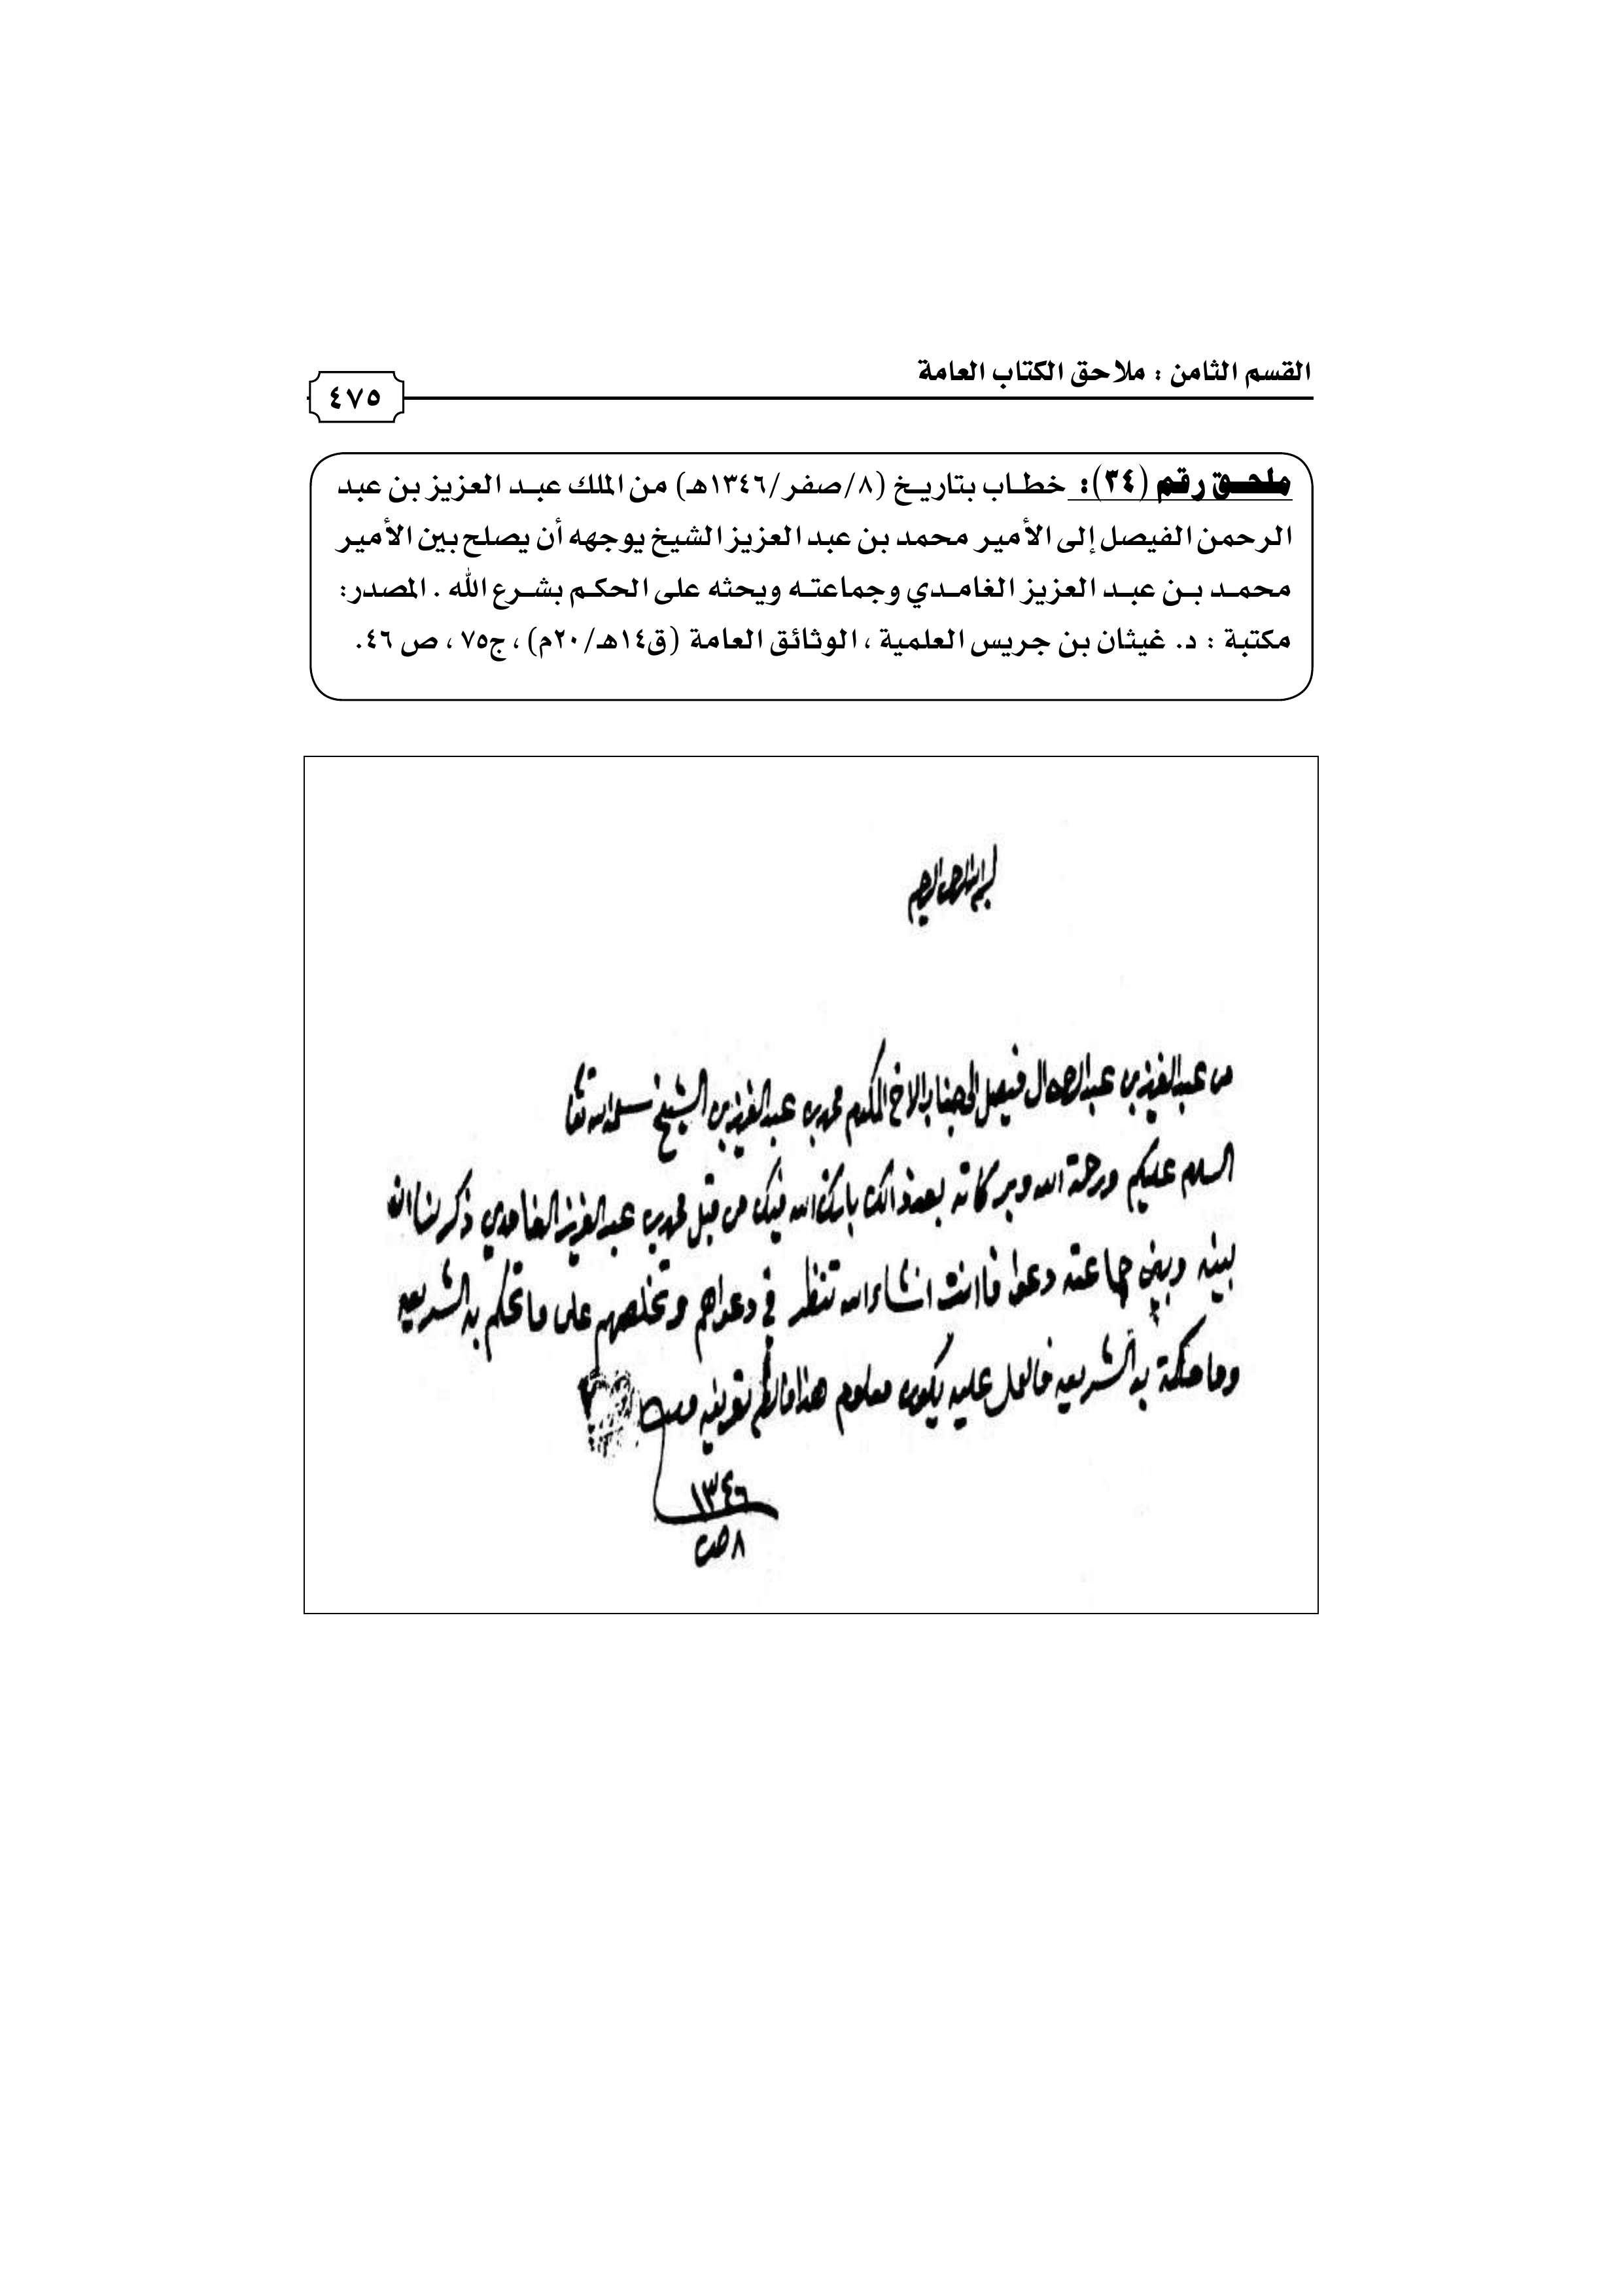 القسم الثامن : ملاحق الكتاب العامة
٤٧٥
ملحق رقم (٣٤): خطاب بتاريخ (٨/صفر/١٣٤٦هـ) من الملك عبد العزيز بن عبد
الرحمن الفيصل إلى الأمير محمد بن عبد العزيز الشيخ يوجهه أن يصلح بين الأمير
محمد بن عبد العزيز الغامدي وجماعته ويحثه على الحكم بشرع الله . المصدر:
مكتبة : د. غيثان بن جريس العلمية ، الوثائق العامة (ق١٤هـ/٢٠م) ، ج٧٥ ، ص ٤٦.
بسم الله الرحمن الرحيم
من عبد العزيز بن عبد الرحمن ال فيصل الى جناب الاخ المكرم محمد بن عبد العزيز بن الشيخ سلمه الله تعا
السلام عليكم ورحمة الله وبركاته بعد ذالك بارك الله فيك من قبل محمد بن عبد العزيز الغامدي ذكر لنا ان
بينه وبين جماعته دعوا فاانت انشاء الله تنظر في دعواهم وتخلصهم على ما تحكم به الشريعه
وما حكمة به الشريعه فالعمل عليه يكون معلوم هذا مالزم تعريفه
١٣٤٦
٨ ص